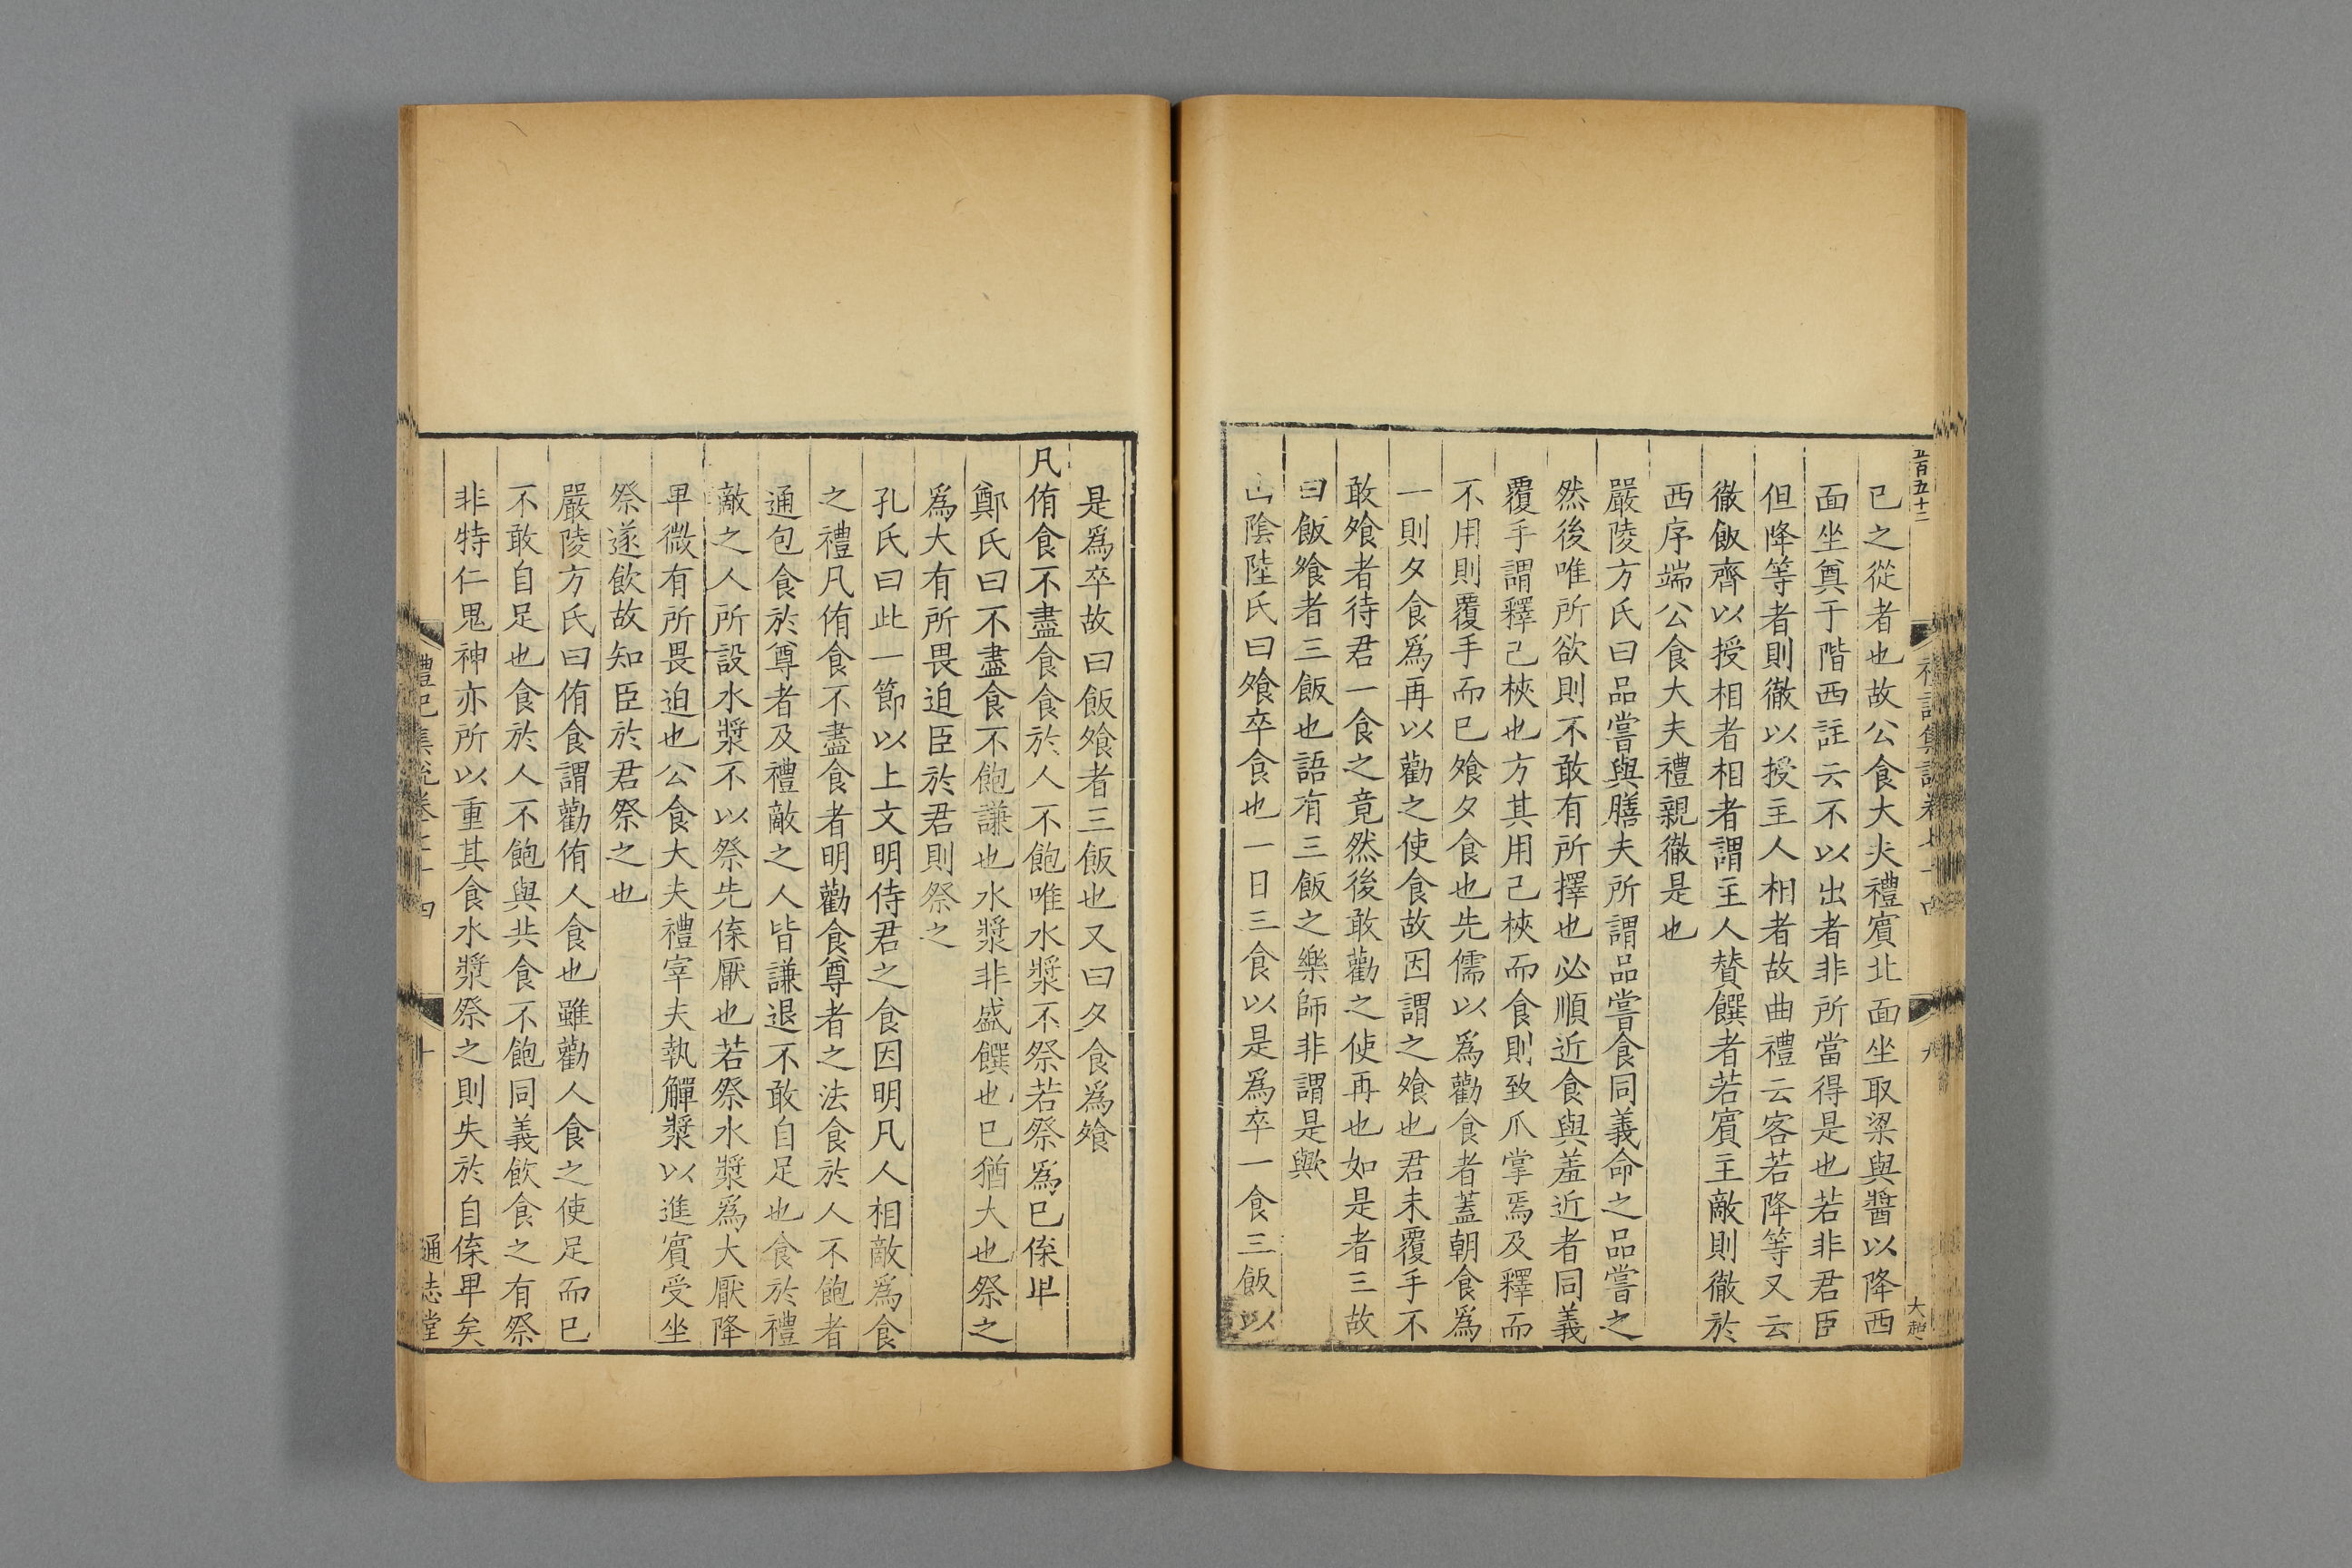 五百五十二
已之從者也故公食大夫禮賓北面坐取粱與醬以降西
面坐奠于階西註云不以出者非所當得是也若非君臣
但降等者則徹以授主人相者故曲禮云客若降等又云
徹飯齊以授相者相者謂主人贊饌者若賓主敵則徹於
西序端公食大夫禮親徹是也
嚴陵方氏曰品嘗與膳夫所謂品嘗食同義命之品嘗之
然後唯所欲則不敢有所擇也必順近食與羞近者同義
覆手謂釋己梜也方其用己梜而食則致爪掌焉及釋而
不用則覆手而已飧夕食也先儒以爲勸食者蓋朝食爲
一則夕食爲再以勸之使食故因謂之飧也君未覆手不
敢飧者待君一食之竟然後敢勸之使再也如是者三故
曰飯飧者三飯也語有三飯之樂師非謂是歟
山陰陸氏曰飧卒食也一日三食以是爲卒一食三飯以
是爲卒故曰飯飧者三飯也又曰夕食爲飧
凡侑食不盡食食於人不飽唯水漿不祭若祭爲已傺卑
鄭氏曰不盡食不飽謙也水漿非盛饌也已猶大也祭之
爲大有所畏迫臣於君則祭之
孔氏曰此一節以上文明侍君之食因明凡人相敵爲食
之禮凡侑食不盡食者明勸食尊者之法食於人不飽者
通包食於尊者及禮敵之人皆謙退不敢自足也食於禮
敵之人所設水漿不以祭先傺厭也若祭水漿爲大厭降
卑微有所畏迫也公食大夫禮宰夫執觶漿以進賓受坐
祭遂飲故知臣於君祭之也
嚴陵方氏曰侑食謂勸侑人食也雖勸人食之使足而已
不敢自足也食於人不飽與共食不飽同義飲食之有祭
非特仁鬼神亦所以重其食水漿祭之則失於自傺卑矣
通志堂